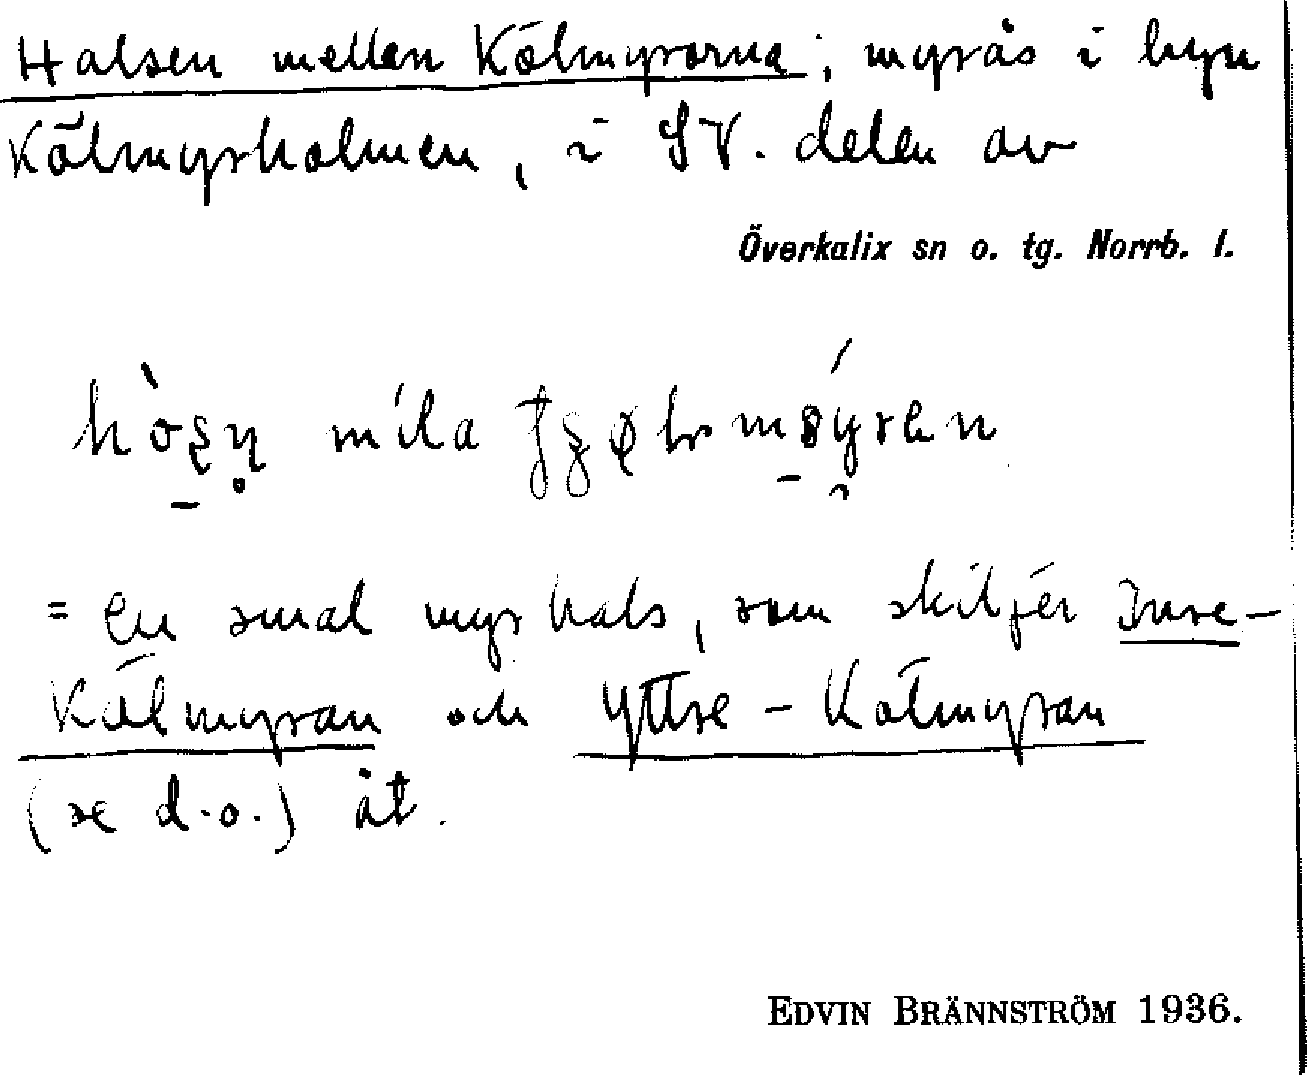 Halsen mellan Kälmyrorna; myrås i byn
Kälmyrholmen, i SV. delen av
Överkalix sn o. tg. Norrb. l.
= En smal myrhals, som skiljer Inre-
Kälmyran och Yttre-Kälmyran
(se d.o.) åt.
EDVIN BRÄNNSTRÖM 1936.